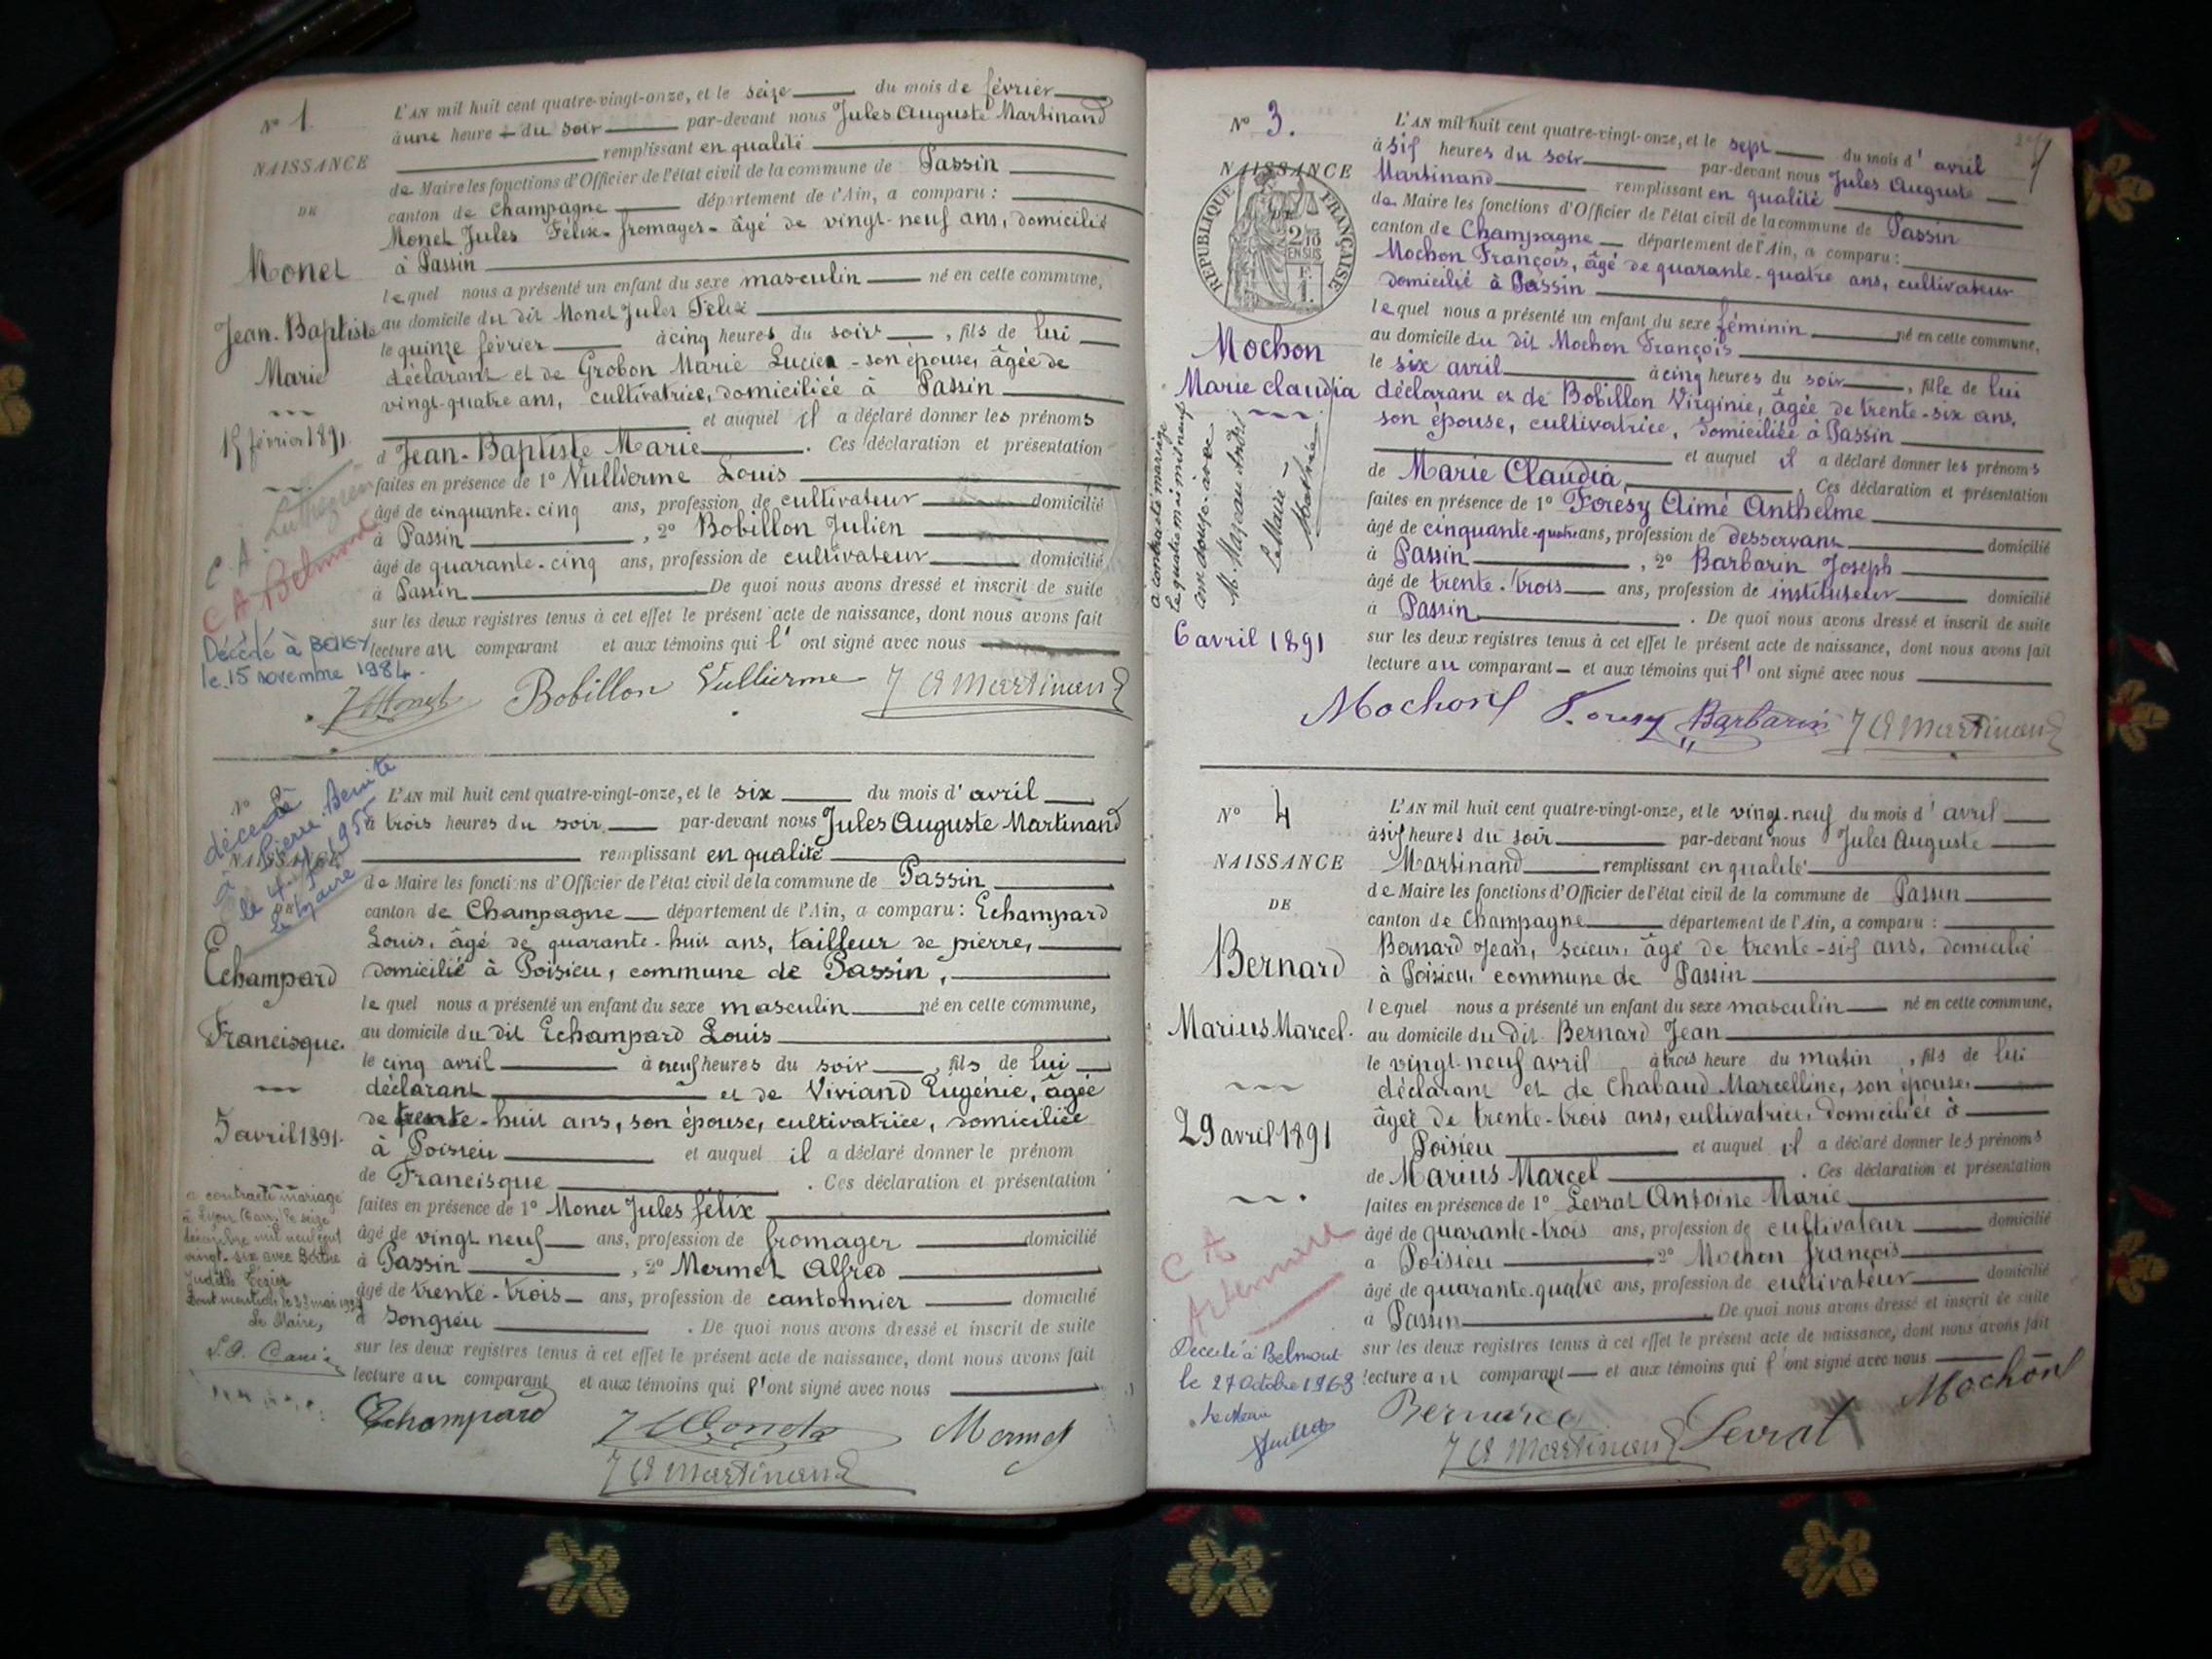 Nº 1.
NAISSANCE
DE
Monet
Jean-Baptiste
Marie
15 février 1891.
C. A.
C A Belmont
Décédé à BELLEY
le 15 novembre 1984.
L'AN mil huit cent quatre-vingt-onze, et le seize du mois de février
à une heure du soir par-devant nous Jules Auguste Martinand
remplissant en qualité
de Maire les fonctions d'Officier de l'état civil de la commune de Passin
canton de Champagne département de l'Ain, a comparu :
Monet Jules Félix - fromager - âgé de vingt-neuf ans, domicilié
à Passin
lequel nous a présenté un enfant du sexe masculin né en cette commune,
au domicile du dit Monet Jules Félix
le quinze février à cinq heures du soir, fils de lui
déclarant et de Grobon Marie Lucie - son épouse, âgée de
vingt-quatre ans, cultivatrice, domiciliée à Passin
et auquel il a déclaré donner les prénoms
d Jean-Baptiste Marie. Ces déclaration et présentation
faites en présence de 1º Vullierme Louis
âgé de cinquante-cinq ans, profession de cultivateur domicilié
à Passin, 2º Bobillon Julien
âgé de quarante-cinq ans, profession de cultivateur domicilié
à Passin De quoi nous avons dressé et inscrit de suite
sur les deux registres tenus à cet effet le présent acte de naissance, dont nous avons fait
lecture au comparant et aux témoins qui l'ont signé avec nous
J Monet Bobillon Vullierme J A Martinand
Nº 2
NAISSANCE
décédé
à Pierre-Bénite
le Maire
Echampard
Francisque.
5 avril 1891.
a contracté mariage
à Lyon le seize
décembre mil neuf cent
vingt-six avec Berthe
Judith
Le Maire,
L'AN mil huit cent quatre-vingt-onze, et le six du mois d'avril
à trois heures du soir, par-devant nous Jules Auguste Martinand
remplissant en qualité
de Maire les fonctions d'Officier de l'état civil de la commune de Passin
canton de Champagne département de l'Ain, a comparu : Echampard
Louis, âgé de quarante-huit ans, tailleur de pierre,
domicilié à Poisieu, commune de Passin,
lequel nous a présenté un enfant du sexe masculin né en cette commune,
au domicile du dit Echampard Louis
le cinq avril à neuf heures du soir, fils de lui
déclarant et de Viviand Eugénie, âgée
de trente-huit ans, son épouse, cultivatrice, domiciliée
à Poisieu et auquel il a déclaré donner le prénom
de Francisque. Ces déclaration et présentation
faites en présence de 1º Monet Jules félix
âgé de vingt neuf ans, profession de fromager domicilié
à Passin, 2º Mermet Alfred
âgé de trente-trois ans, profession de cantonnier domicilié
à Songieu. De quoi nous avons dressé et inscrit de suite
sur les deux registres tenus à cet effet le présent acte de naissance, dont nous avons fait
lecture au comparant et aux témoins qui l'ont signé avec nous
Echampard J Monet Mermet
J A Martinand
Nº 3.
NAISSANCE
REPUBLIQUE FRANÇAISE
2/10
EN SUS
Mochon
Marie claudia
a contracté mariage
le quatre mai mil neuf
cent douze avec
M. Mazeau André
Le Maire
6 avril 1891
L'AN mil huit cent quatre-vingt-onze, et le sept du mois d'avril
à six heures du soir par-devant nous Jules Auguste
Martinand remplissant en qualité
de Maire les fonctions d'Officier de l'état civil de la commune de Passin
canton de Champagne département de l'Ain, a comparu :
Mochon François, âgé de quarante-quatre ans, cultivateur
domicilié à Passin
lequel nous a présenté un enfant du sexe féminin né en cette commune,
au domicile du dit Mochon François
le six avril à cinq heures du soir, fille de lui
déclarant et de Bobillon Virginie, âgée de trente-six ans,
son épouse, cultivatrice, domiciliée à Passin
et auquel il a déclaré donner les prénoms
de Marie Claudia. Ces déclaration et présentation
faites en présence de 1º Foresy Aimé Anthelme
âgé de cinquante-quatre ans, profession de desservant domicilié
à Passin, 2º Barbarin Joseph
âgé de trente-trois ans, profession de instituteur domicilié
à Passin. De quoi nous avons dressé et inscrit de suite
sur les deux registres tenus à cet effet le présent acte de naissance, dont nous avons fait
lecture au comparant et aux témoins qui l'ont signé avec nous
Mochon Foresy Barbarin J A Martinand
Nº 4
NAISSANCE
DE
Bernard
Marius Marcel.
29 avril 1891
C A
Artemare
Décédé à Belmont
le 27 Octobre 1963
Le Maire
L'AN mil huit cent quatre-vingt-onze, et le vingt-neuf du mois d'avril
à six heures du soir par-devant nous Jules Auguste
Martinand remplissant en qualité
de Maire les fonctions d'Officier de l'état civil de la commune de Passin
canton de Champagne département de l'Ain, a comparu :
Bernard Jean, scieur, âgé de trente-six ans, domicilié
à Poisieu, commune de Passin
lequel nous a présenté un enfant du sexe masculin né en cette commune,
au domicile du dit Bernard Jean
le vingt-neuf avril à trois heure du matin, fils de lui
déclarant et de Chabaud Marcelline, son épouse,
âgée de trente-trois ans, cultivatrice, domiciliée à
Poisieu et auquel il a déclaré donner les prénoms
de Marius Marcel. Ces déclaration et présentation
faites en présence de 1º Levrat Antoine Marie
âgé de quarante-trois ans, profession de cultivateur domicilié
a Poisieu 2º Mochon françois
âgé de quarante-quatre ans, profession de cultivateur domicilié
a Passin. De quoi nous avons dressé et inscrit de suite
sur les deux registres tenus à cet effet le présent acte de naissance, dont nous avons fait
lecture au comparant et aux témoins qui l'ont signé avec nous
Bernard Levrat Mochon
J A Martinand